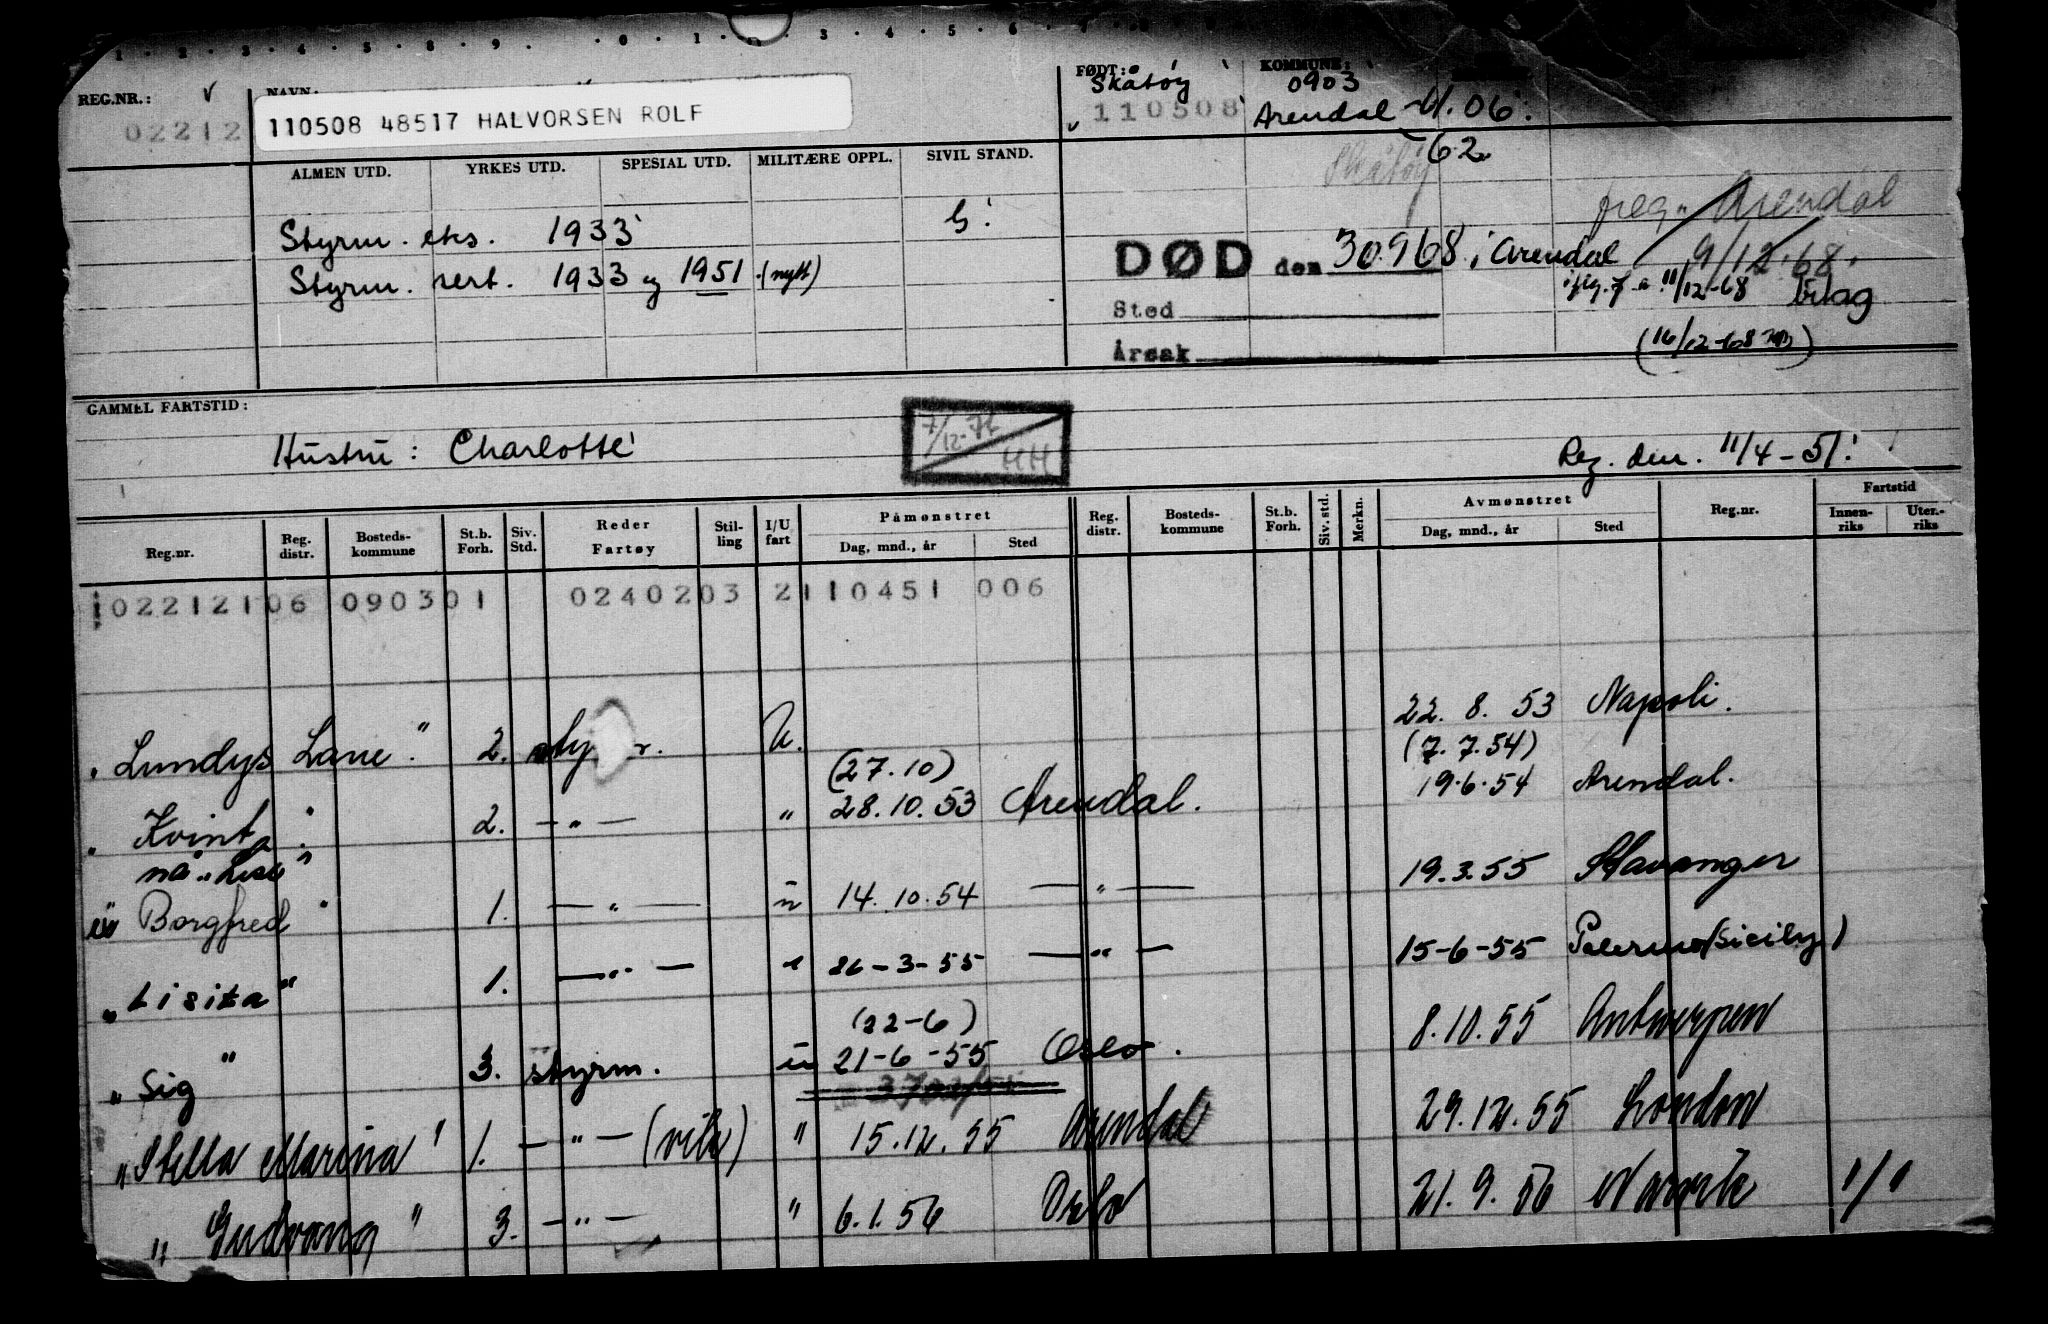 REG.NR.: NAVN: FØDT: Skåtøy KOMMUNE: 0903
02212 110508 48517 HALVORSEN ROLF 110508 Arendal 06
62
ALMEN UTD. YRKES UTD. SPESIAL UTD. MILITÆRE OPPL. SIVIL STAND. Skåtøy
Styrm. eks. 1933 G. freg. Arendal
Styrm. sert. 1933 og 1951 (nytt) DØD den 30.9.68 i Arendal 9/12-68
11/12-68 bilag
Sted
Årsak (16/12-68)
GAMMEL FARTSTID:
Hustru: Charlotte 7/12-76 HH Reg. den. 11/4-51.
Reg.nr. Reg. distr. Bosteds-kommune St.b. Forh. Siv. Std. Reder Fartøy Stil-ling I/U fart Påmønstret Dag, mnd., år Sted Reg. distr. Bosteds-kommune St.b. Forh. Siv. std. Merkn. Avmønstret Dag, mnd., år Sted Reg.nr. Fartstid Innen-riks Uter.-riks
102212106 090301 0240203 2110451 006
"Lundys Lane" 2. U. 22. 8. 53 Napoli.
(27.10) (7.7.54)
"Kvint" 2. — " — " 28.10.53 Arendal. 19.6.54 Arendal.
nå "Lise"
"Borgfred" 1. — " — u 14.10.54 — " — 19.3.55 Stavanger
"Lisita" 1. — " — " 26-3-55 — " — 15-6-55 Palermo (Sicily)
(22-6)
"Sig" 3. styrm. u 21-6-55 Oslo. 8.10.55 Antwerpen
"Stella Marina" 1. — " — (vik) " 15.12.55 Arendal 29.12.55 London
"Gudvang" 3. — " — " 6.1.56 Oslo 21.9.56 Narvik 1/1